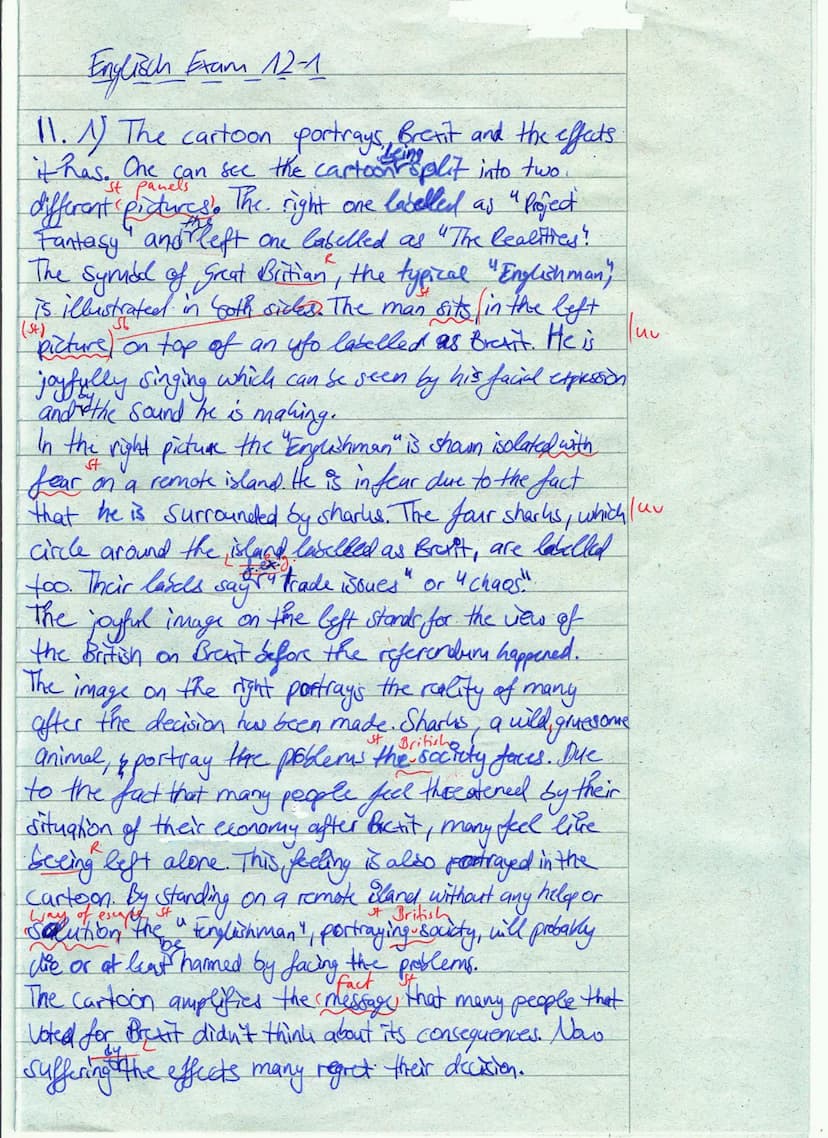 Englisch Exam 12-1
II. 1) The cartoon portrays Brexit and the effects
being
it has. One can see the cartoon split into two
st panels
different (pictures). The right one labelled as "Project
the
Fantasy" and left one labelled as "The Realities".
R
The symbol of Great Britian, the typical "Englishman",
is illustrated in both sides. The man sits in the left
st
(st) Sb
picture) on top of an ufo labelled as Brexit. He is
/uv
joyfully singing which can be seen by his facial expression
by
and the sound he is making.
In the right picture the "Englishman" is shown isolated with
st
fear on a remote island. He is in fear due to the fact
that he is surrounded by sharks. The four sharks, which
/uv
circle around the island labelled as Brexit, are labelled
L f. ex. g.
too. Their labels say "trade issues" or "chaos".
The joyful image on the left stands for the view of
the British on Brexit before the referendum happened.
The image on the right portrays the reality of many
after the decision has been made. Sharks, a wild, gruesome
st British
animal, portray the problems the society faces. Due
to the fact that many people feel threatened by their
situation of their economy after Brexit, many feel like
R
beeing left alone. This feeling is also portrayed in the
cartoon. By standing on a remote island without any help or
way of escape st st British
solution, the "Englishman", portraying society, will probably
be
die or at least harmed by facing the problems.
fact st
The cartoon amplifies the (message) that many people that
voted for Brexit didn't think about its consequences. Now
by L
suffering the effects many regret their decision.